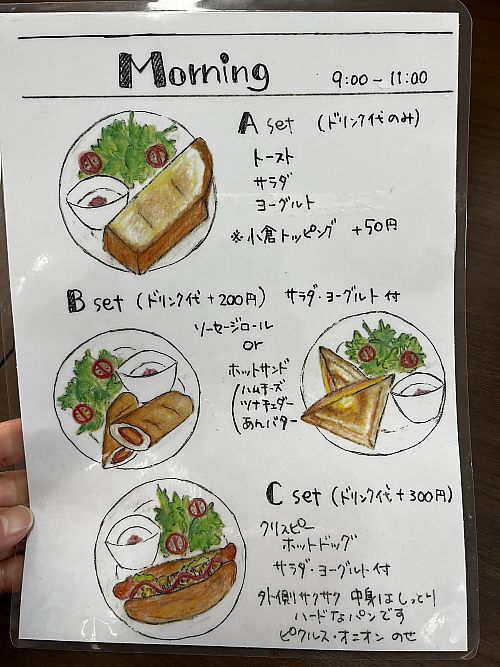 Morning 9:00-11:00
A set (ドリンク代のみ)
トースト
サラダ
ヨーグルト
※小倉トッピング +50円
B set (ドリンク代+200円) サラダ・ヨーグルト付
ソーセージロール
or
ホットサンド
(ハムチーズ
ツナチェダー
あんバター)
C set (ドリンク代+300円)
クリスピー
ホットドッグ
サラダ・ヨーグルト付
外側サクサク 中身はしっとり
ハードなパンです
ピクルス・オニオンのせ